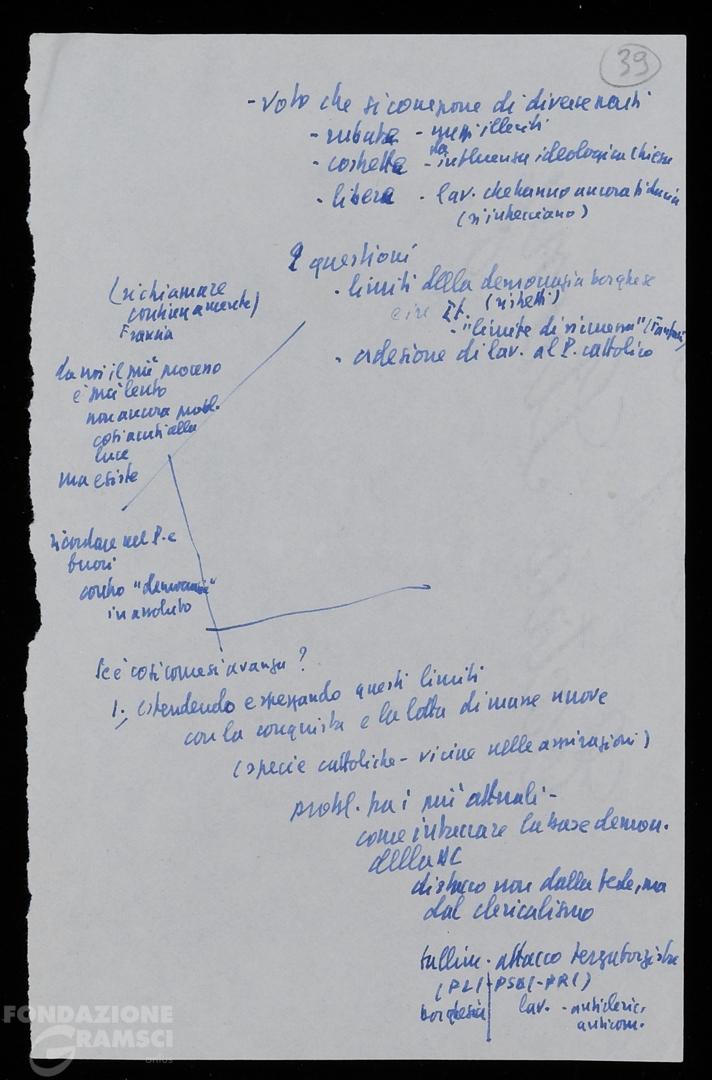 39
- voto che si compone di diverse parti
- rubata - mezzi illeciti
- costretta - influenza ideologica chiesa
- libera - lav. che hanno ancora fiducia
(si intrecciano)
2 questioni
- limiti della democrazia borghese
in It. (ristretti)
- "limite di sicurezza"
- adesione di lav. al P. cattolico
(richiamare
continuamente)
Francia
da noi il più
è più lento
non ancora probl.
così acuti alla
luce
ma esiste
ricordare nel P. e
fuori
contro "democrazia"
in assoluto
Se è così come si avanza?
1. estendendo e spezzando questi limiti
con la conquista e la lotta di masse nuove
(specie cattoliche - vicine nelle aspirazioni)
probl. tra i più attuali -
come intaccare la base democr.
della DC
distacco non dalla fede, ma
dal clericalismo
fallim. attacco terzaforzista
(PLI - PSDI - PRI)
borghesia lav. - anticleric.
anticom.
FONDAZIONE
GRAMSCI
onlus